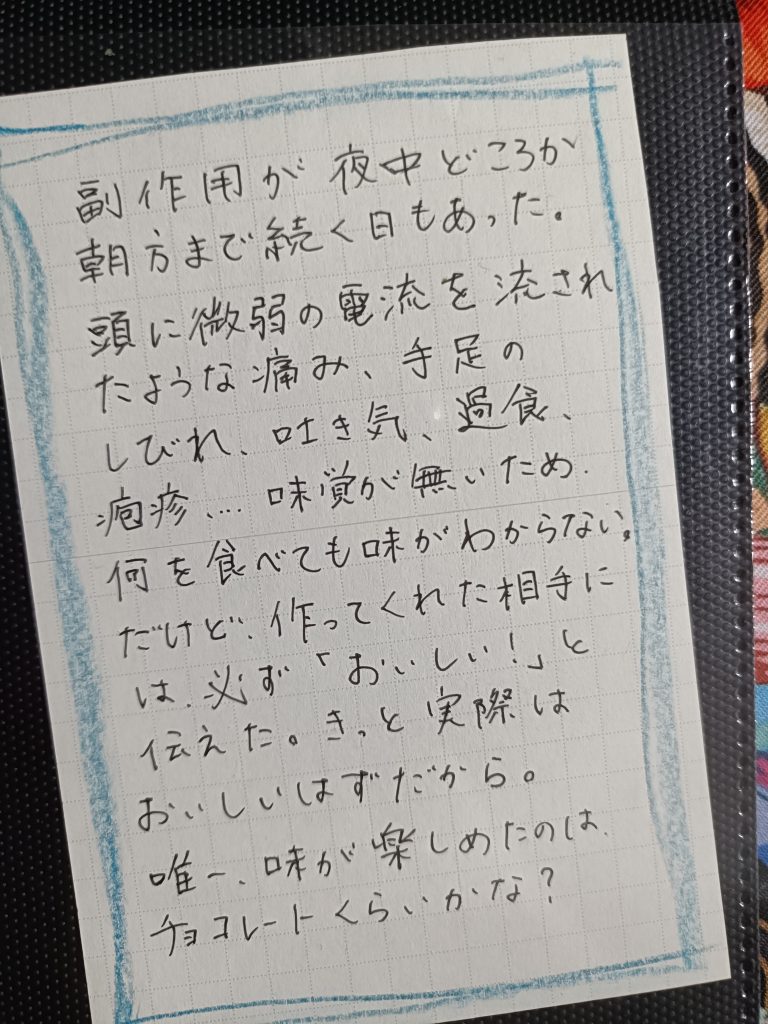 副作用が夜中どころか
朝方まで続く日もあった。
頭に微弱の電流を流され
たような痛み、手足の
しびれ、吐き気、過食、
疱疹、… 味覚が無いため、
何を食べても味がわからない。
だけど、作ってくれた相手に
は、必ず「おいしい！」と
伝えた。きっと実際は
おいしいはずだから。
唯一、味が楽しめたのは、
チョコレートくらいかな？